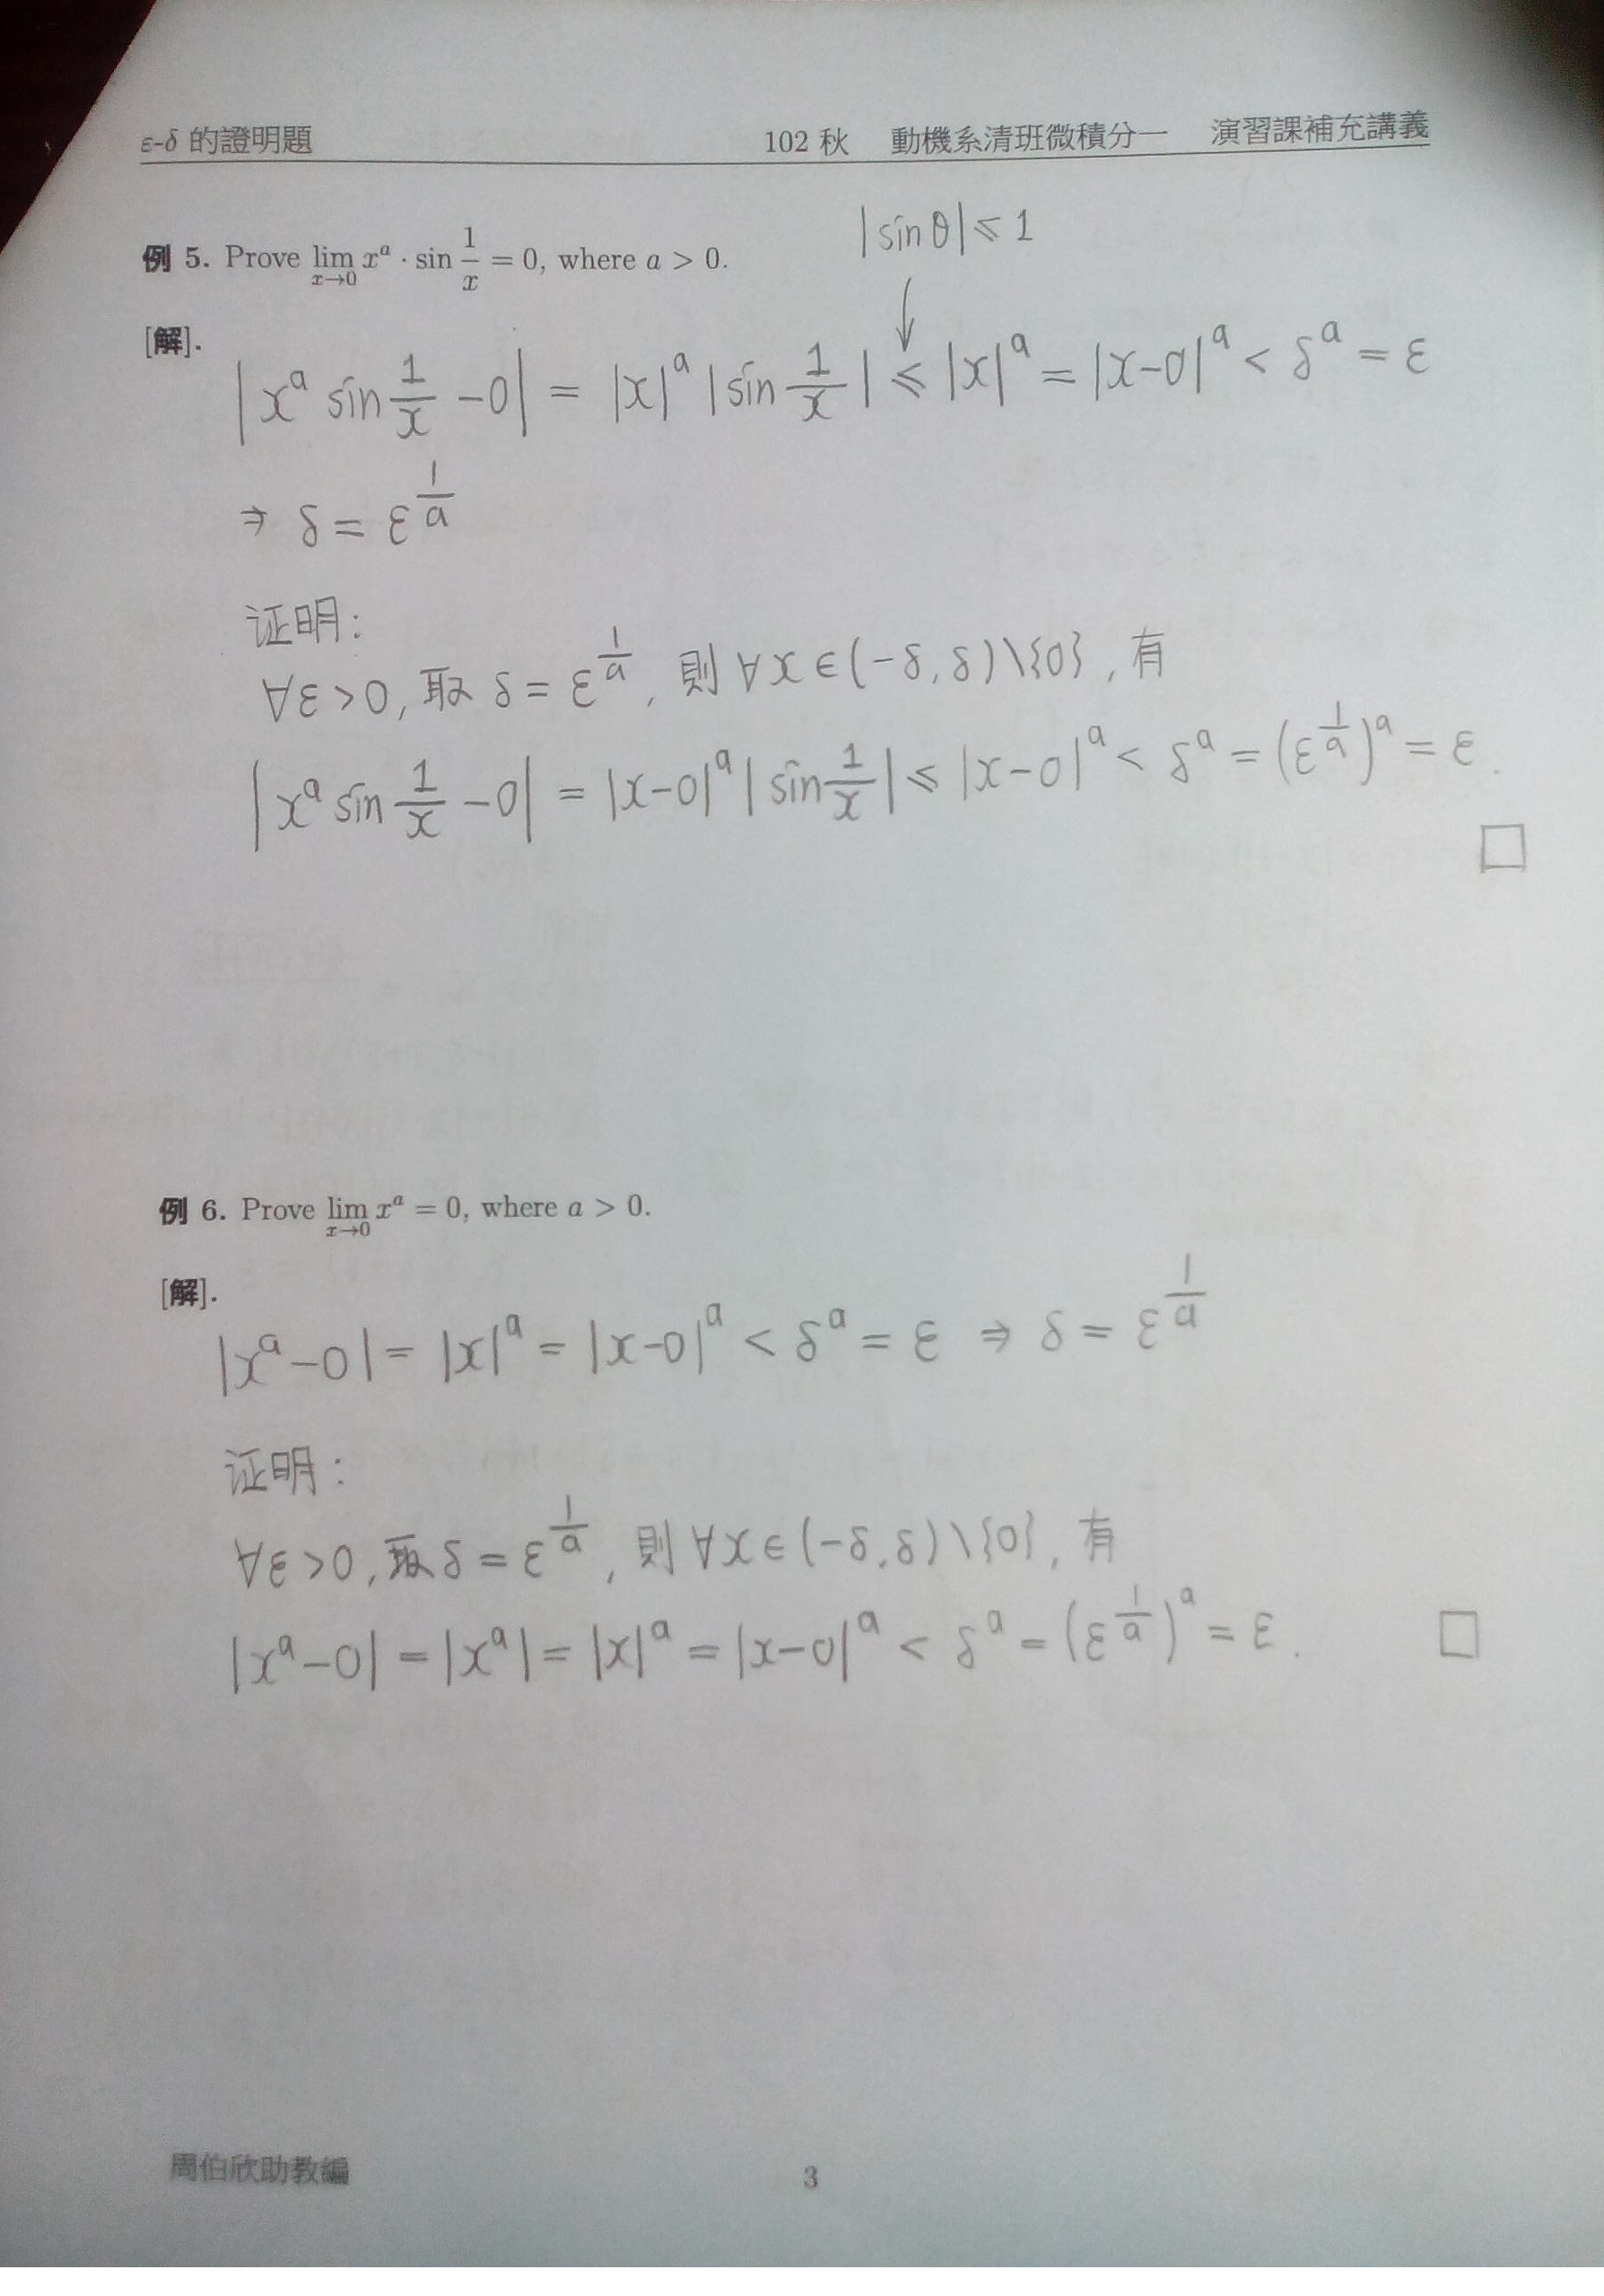 ε-δ 的證明題 102 秋 動機系清班微積分一 演習課補充講義
|sin θ| ⩽ 1
例 5. Prove lim_{x→0} x^a · sin 1/x = 0, where a > 0.
[解].
|x^a sin 1/x − 0| = |x|^a |sin 1/x| ⩽ |x|^a = |x−0|^a < δ^a = ε
⇒ δ = ε^{1/a}
证明:
∀ε>0, 取 δ = ε^{1/a}, 則 ∀x∈(−δ, δ)\{0}, 有
|x^a sin 1/x − 0| = |x−0|^a |sin 1/x| ⩽ |x−0|^a < δ^a = (ε^{1/a})^a = ε.
□
例 6. Prove lim_{x→0} x^a = 0, where a > 0.
[解].
|x^a − 0| = |x|^a = |x−0|^a < δ^a = ε ⇒ δ = ε^{1/a}
证明:
∀ε>0, 取 δ = ε^{1/a}, 則 ∀x∈(−δ, δ)\{0}, 有
|x^a−0| = |x^a| = |x|^a = |x−0|^a < δ^a = (ε^{1/a})^a = ε. □
周伯欣助教編 3